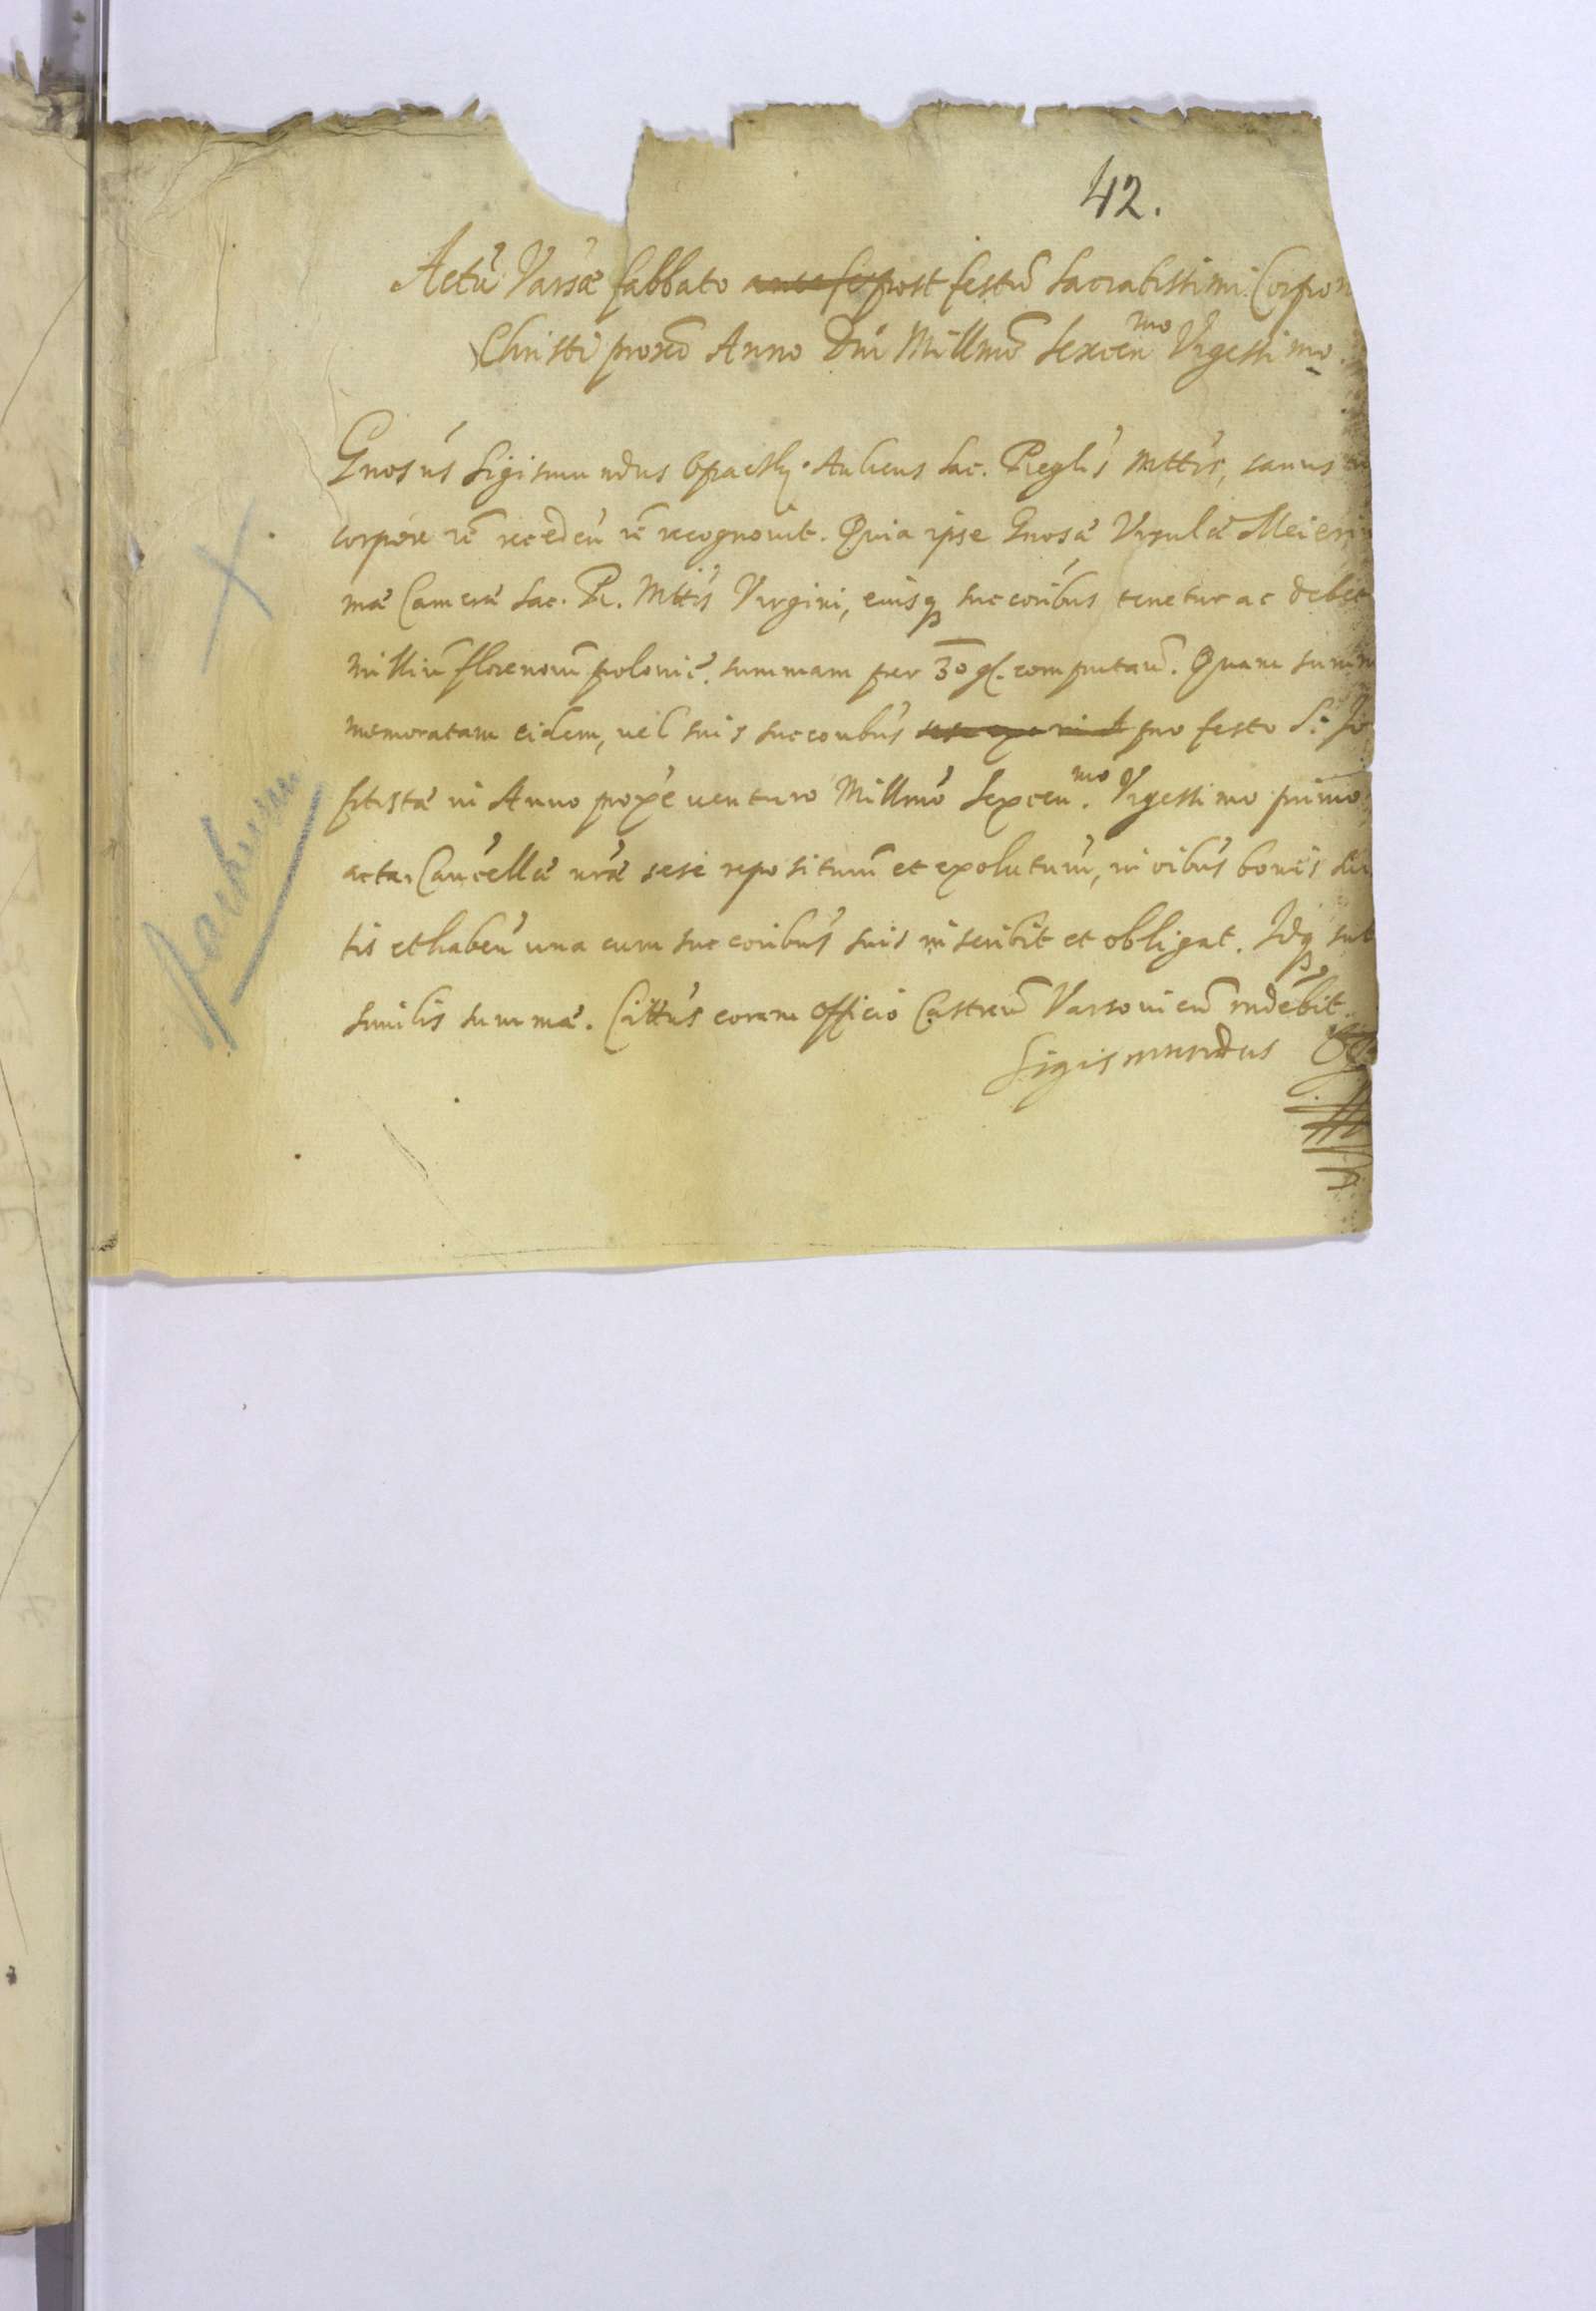 42.
Actũ Varsæ sabbato ante fe post festũ Sacratissimi Corpor
Christi proxẽ Anno Dni Millmõ Sexcen mo Vigessimo.
Gnosús Sigismundus Opacky. Aulicus Sac. Reglis Mttis, sanus
corpore rẽ recedeń rẽ recognovit. Quia ipse Gnosæ Vrsulæ Meierin
mæ Cameræ Sac. R. Mttis Virgini, eiusq succoribus tenetur ac debet
milliũ florenorũ polonic. summam per 30 gr. computań. Quam summ
memoratam eidem, vel suis succoribus pro festo S. Jo
ptistæ in Anno proxe venturo Millmo Sexcen. mo Vigessimo primo
acta Cancellæ nræ sese repositurũ et exoluturũ, in oibus bonis su
tis et habeń una cum succoribus suis inscribit et obligat. Idq sub
similis summæ. Cittus coram Officio Castreń Varsovień rndebit.
Sigismundus